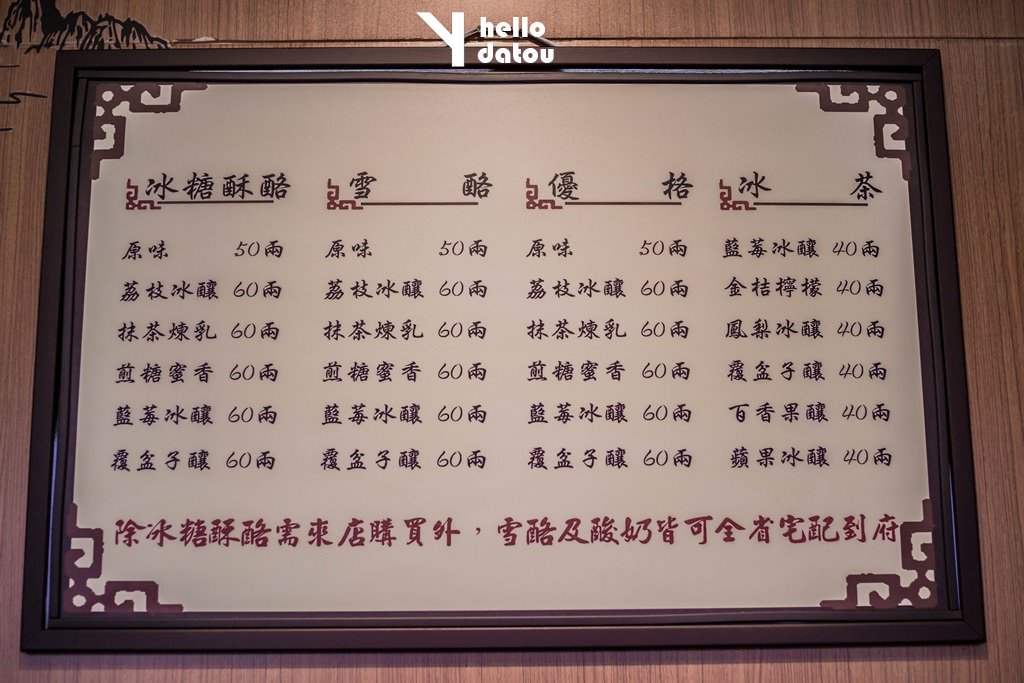 hello
datou
冰糖酥酪 雪酪 優格 冰茶
原味 50兩 原味 50兩 原味 50兩 藍莓冰釀 40兩
荔枝冰釀 60兩 荔枝冰釀 60兩 荔枝冰釀 60兩 金桔檸檬 40兩
抹茶煉乳 60兩 抹茶煉乳 60兩 抹茶煉乳 60兩 鳳梨冰釀 40兩
煎糖蜜香 60兩 煎糖蜜香 60兩 煎糖蜜香 60兩 覆盆子釀 40兩
藍莓冰釀 60兩 藍莓冰釀 60兩 藍莓冰釀 60兩 百香果釀 40兩
覆盆子釀 60兩 覆盆子釀 60兩 覆盆子釀 60兩 蘋果冰釀 40兩
除冰糖酥酪需來店購買外，雪酪及酸奶皆可全省宅配到府